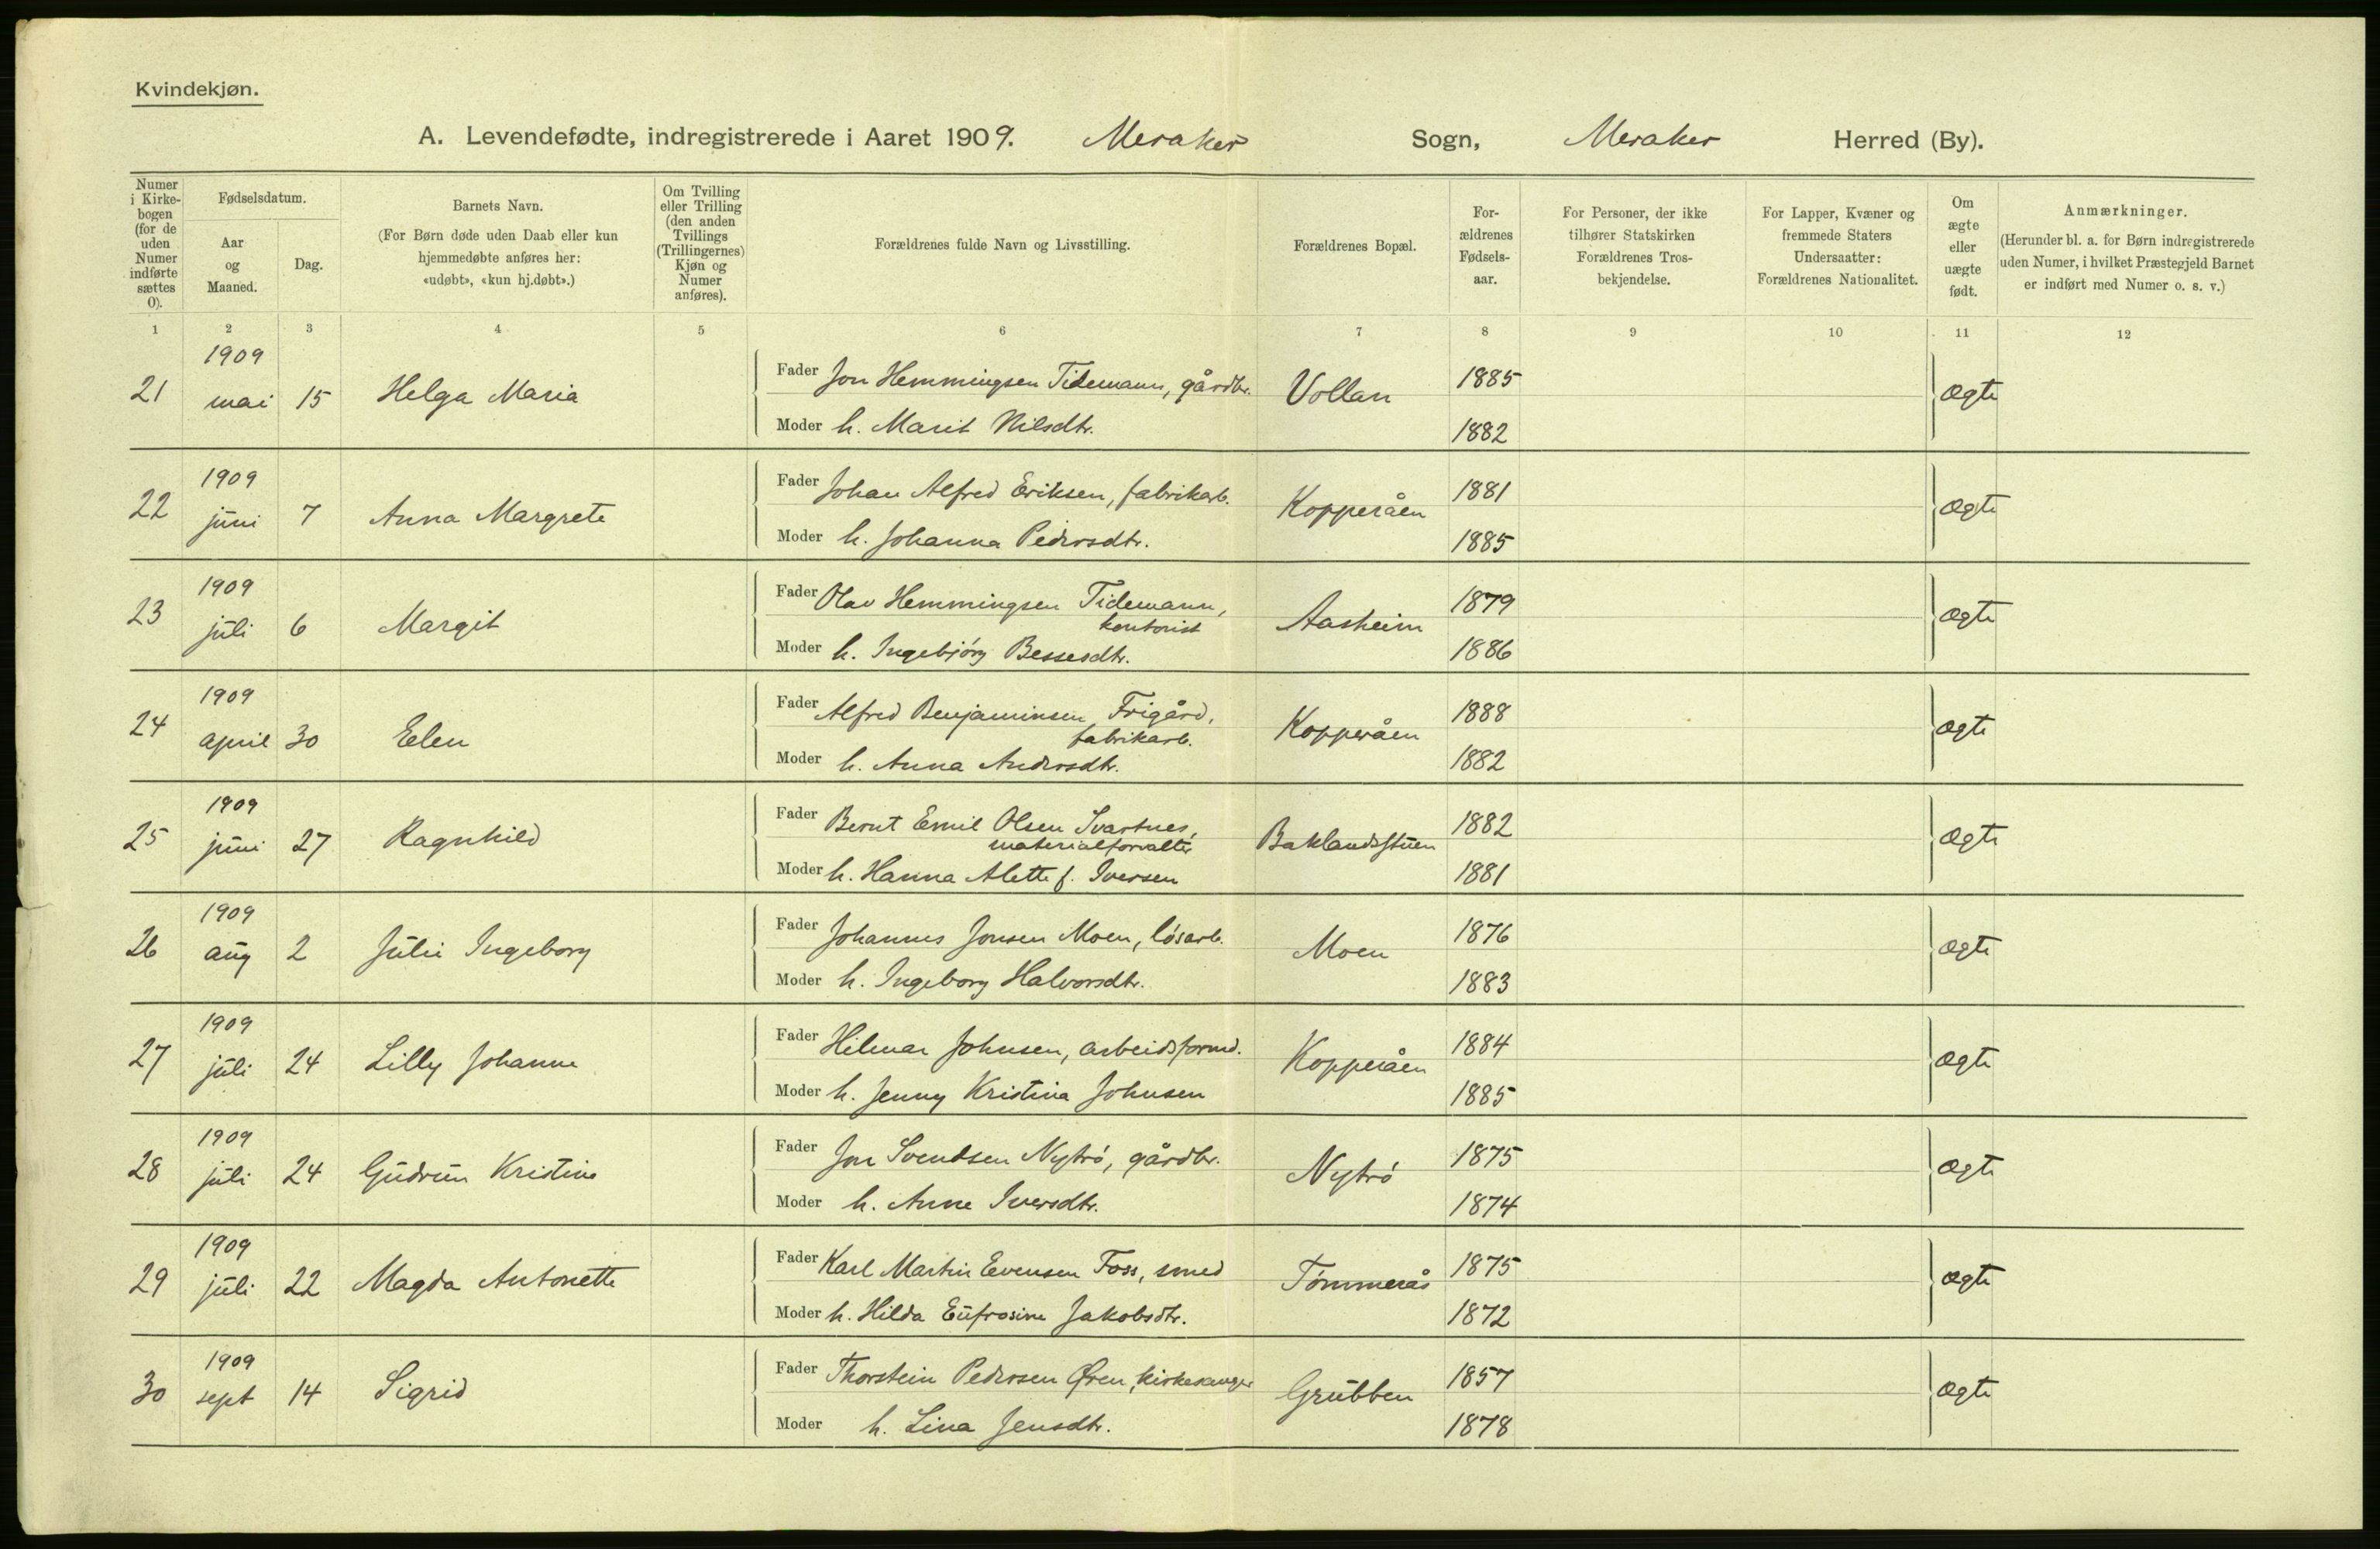 Kvindekjøn.
A. Levendefødte, indregistrerede i Aaret 1909. Meraker Sogn, Meraker Herred (By).
Numer i Kirke-bogen (for de uden Numer indførte sættes 0).
Fødselsdatum.
Aar og Maaned.
Dag.
Barnets Navn.
(For Børn døde uden Daab eller kun hjemmedøbte anføres her: «udøbt», «kun hj.døbt».)
Om Tvilling eller Trilling (den anden Tvillings (Trillingernes) Kjøn og Numer anføres).
Forældrenes fulde Navn og Livsstilling.
Forældrenes Bopæl.
For-ældrenes Fødsels-aar.
For Personer, der ikke tilhører Statskirken Forældrenes Tros-bekjendelse.
For Lapper, Kvæner og fremmede Staters Undersaatter: Forældrenes Nationalitet.
Om ægte eller uægte født.
Anmærkninger.
(Herunder bl. a. for Børn indregistrerede uden Numer, i hvilket Præstegjeld Barnet er indført med Numer o. s. v.)
1 2 3 4 5 6 7 8 9 10 11 12
1909
21 mai 15 Helga Maria Fader Jon Hemmingsen Tidemann, gårdbr. Vollan 1885 ægte
Moder h. Marit Nilsdtr. 1882
1909
22 juni 7 Anna Margrete Fader Johan Alfred Eriksen, fabrikarb. Kopperåen 1881 ægte
Moder h. Johanna Pedersdtr. 1885
1909
23 juli 6 Margit Fader Olav Hemmingsen Tidemann, Aasheim 1879 ægte
kontorist
Moder h. Ingebjörg Bessesdtr. 1886
1909
24 april 30 Elen Fader Alfred Benjaminsen Frigård, Kopperåen 1888 ægte
fabrikarb.
Moder h. Anna Andersdtr. 1882
1909
25 juni 27 Ragnhild Fader Bernt Emil Olsen Svartnes, Baklandsstuen 1882 ægte
materialforvalter
Moder h. Hanna Alette f. Iversen 1881
1909
26 aug 2 Julie Ingeborg Fader Johannes Jonsen Moen, lösarb. Moen 1876 ægte
Moder h. Ingeborg Halvorsdtr. 1883
1909
27 juli 24 Lilly Johanne Fader Hilmar Johnsen, arbeidsformd. Kopperåen 1884 ægte
Moder h. Jenny Kristina Johnsen 1885
1909
28 juli 24 Gudrun Kristine Fader Jon Svendsen Nytrö, gårdbr. Nytrö 1875 ægte
Moder h. Anne Iversdtr. 1874
1909
29 juli 22 Magda Antonette Fader Karl Martin Evensen Foss, smed Tömmerås 1875 ægte
Moder h. Hilda Eufrosine Jakobsdtr. 1872
1909
30 sept 14 Sigrid Fader Thorstein Pedersen Øren, kirkesanger Grubben 1857 ægte
Moder h. Lina Jensdtr. 1878